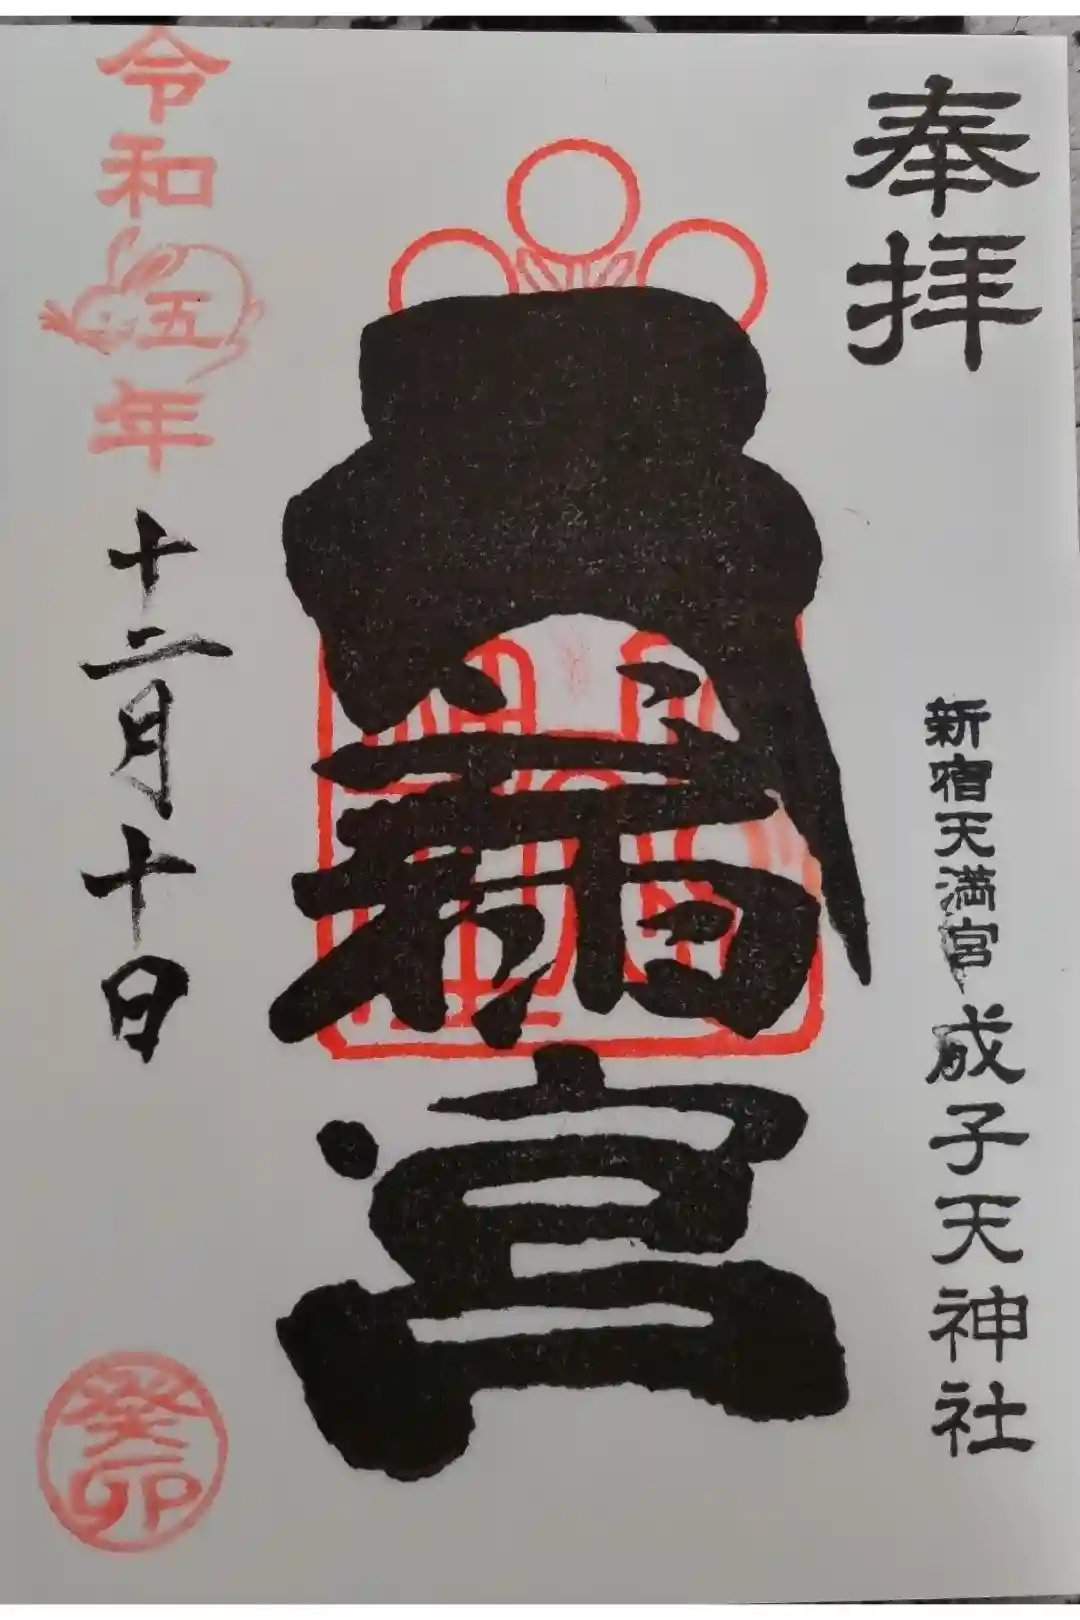 奉拝
新宿天満宮 成子天神社
宮
令和五年
十二月十日
癸卯